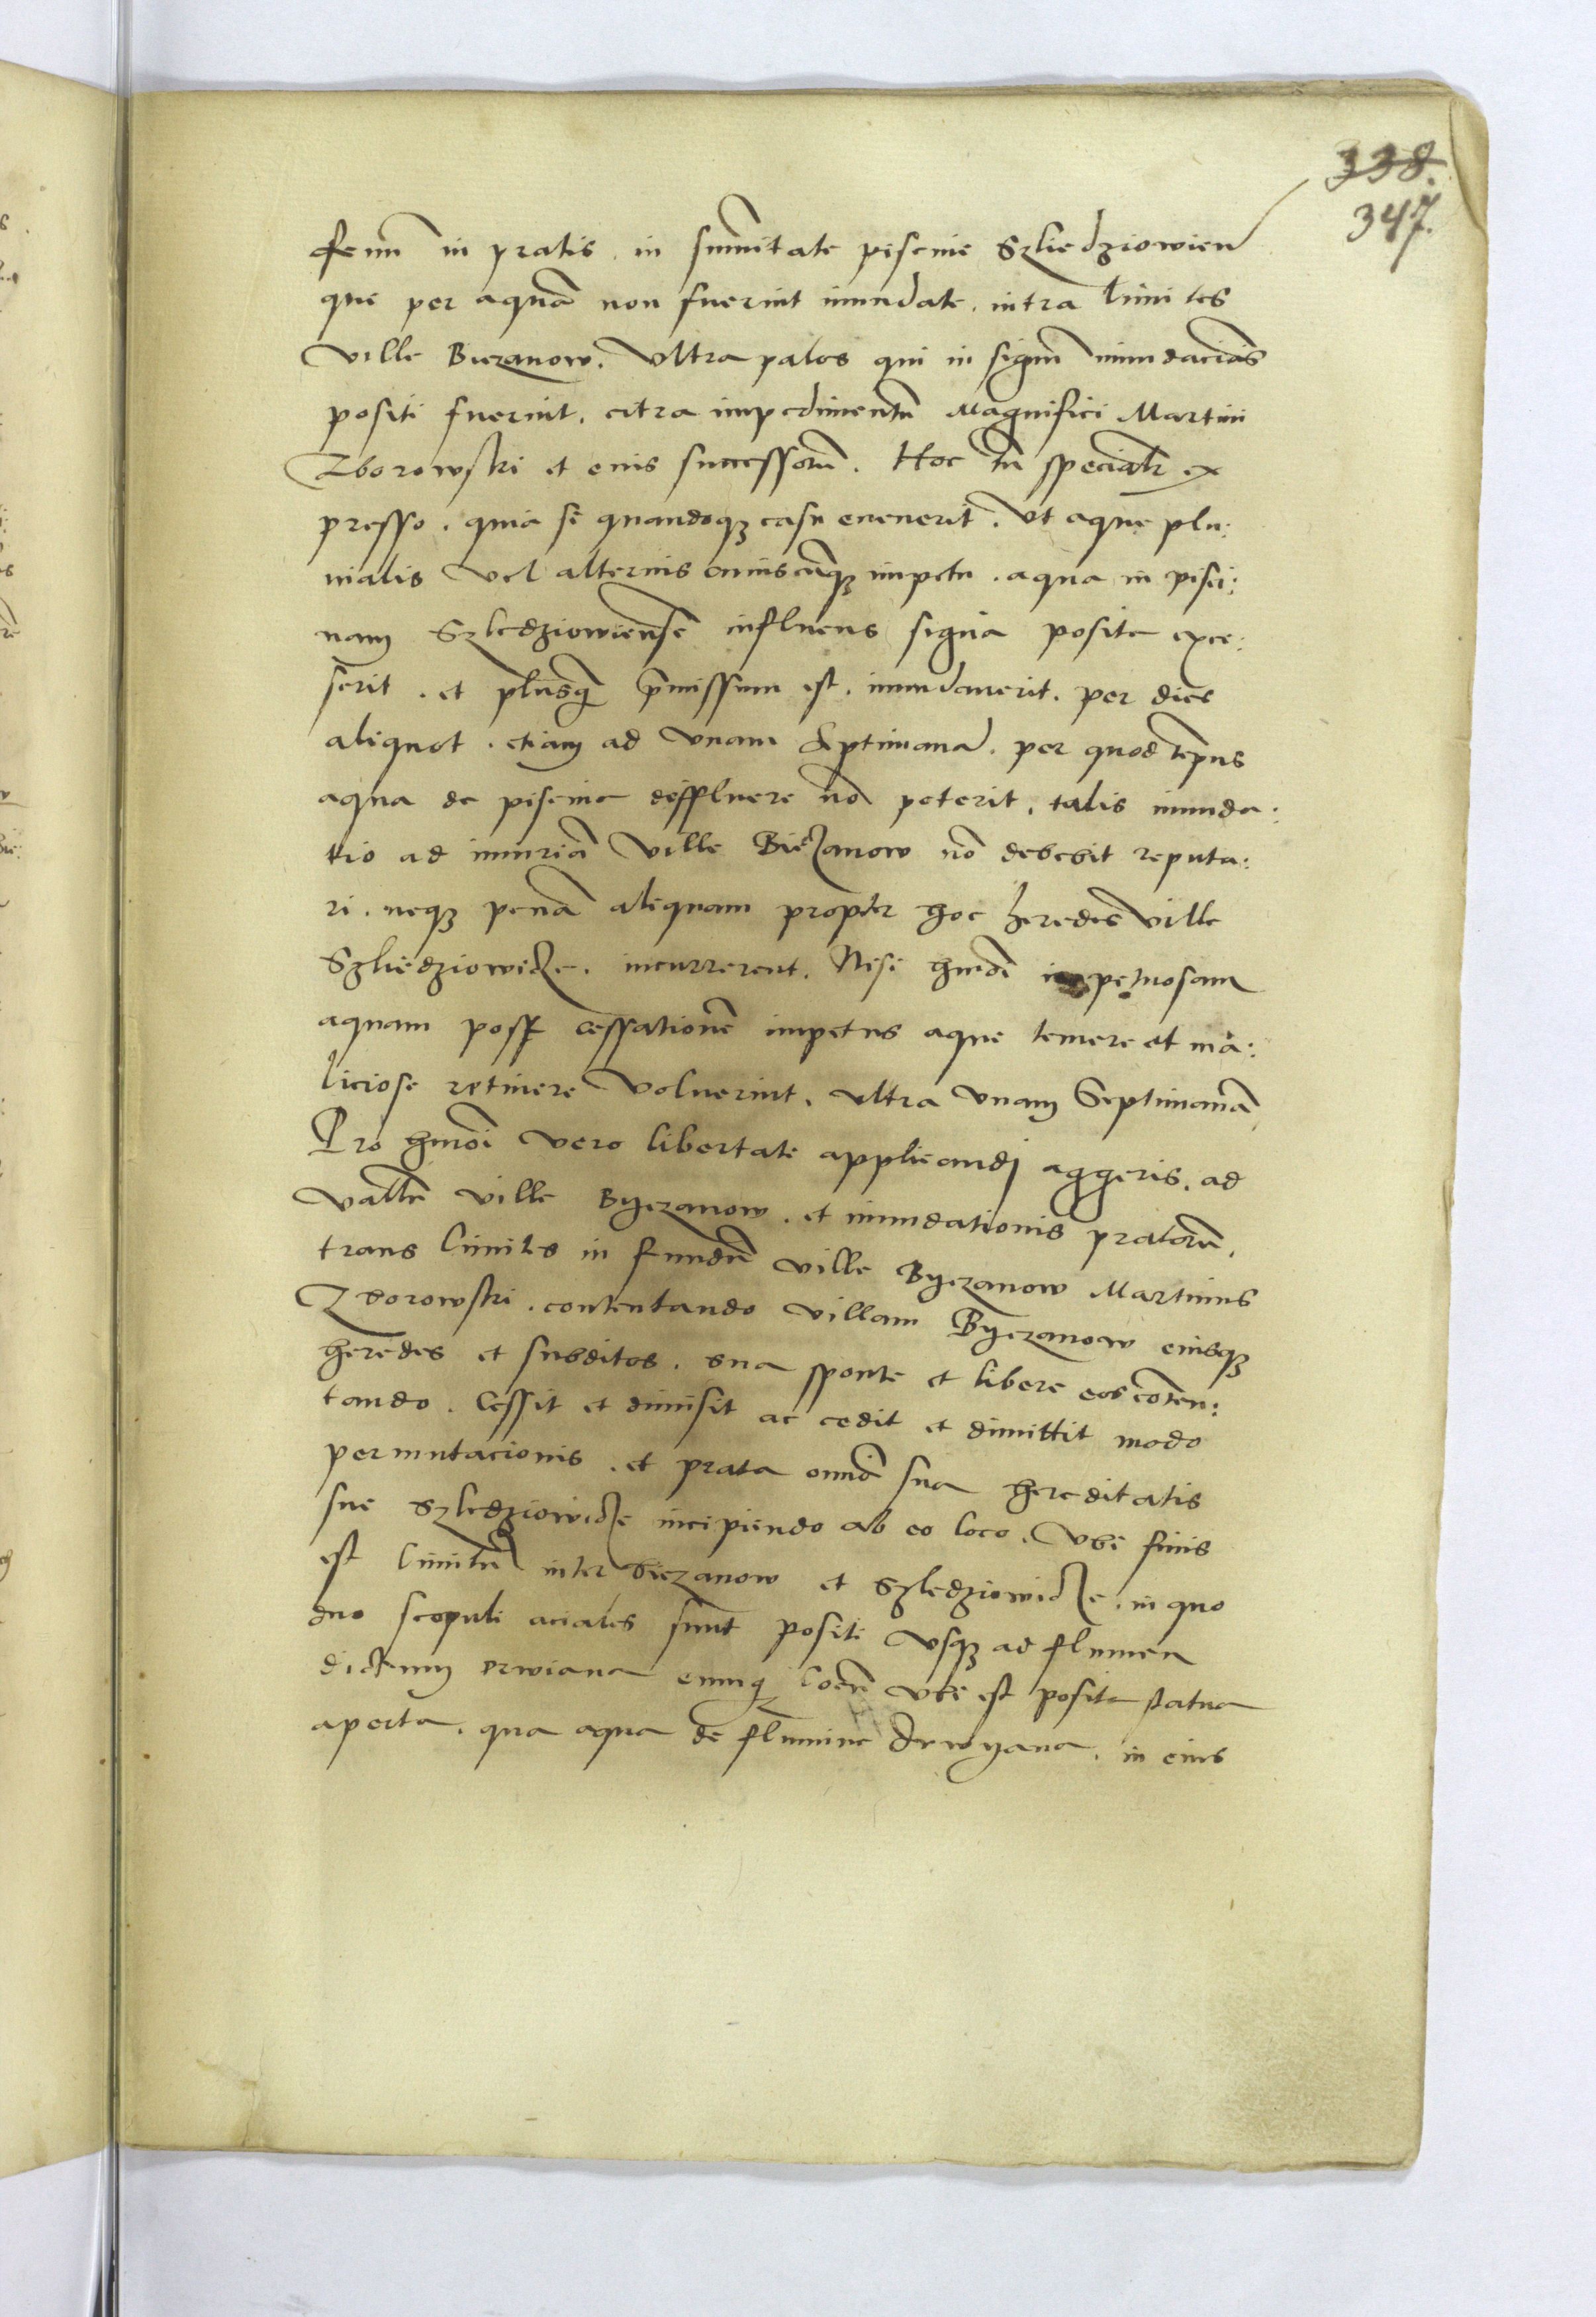 338.
347.
fenũ in pratis in sum̃itate piscine Szliedziowien̄
que per aquã non fuerint inundate. intra limites
ville Biezanow. vltra palos qui in signũ inundaciõis
positi fuerint. citra impedimentũ Magnifici Martini
Zborowski et eius successorũ. Hoc tñ specialr̃ ex
presso. quia si quandoqȝ casu euenerit. vt aque plu:
uialis vel alterius cuiuscũqȝ impetu. aqua in pisci:
nam Szledziowiensẽ influens signa posita exce:
serit. et plusq̃ p̃missum est. inundauerit. per dies
aliquot. etiam ad vnam septimanã. per quod temp̃us
aqua de piscine deffluere nõ poterit. talis inunda:
tio ad iniuriã ville Biezanow nõ debebit reputa:
ri. neqȝ penã aliquam propter hoc heredes ville
Szliedziowicze. incurrerent. Nisi hmõi impetuosam
aquam post cessationẽ impetus aque temere et ma:
liciose retinere voluerint. vltra vnam Septimanã
Pro hmõi vero libertate applicandj aggeris. ad
vallẽ ville Byezanow. et inundationis pratorũ.
trans limites in fundũ ville Byezanow Martinus
Zborowski. contentando villam Byezanow eiusqȝ
heredes et subditos. sua sponte et libere eos cõten:
tando. Cessit et dimisit ac cedit et dimittit modo
permutacionis. et prata omĩa sua hereditatis
sue Szledziowicze incipiendo ab eo loco. vbi finis
est limitũ inter Biezanow et Szledziowicze. in quo
duo scopuli aciales sunt positi vsqȝ ad flumen
dictum Drwiana eumq̃ locũ vbi est posita statua
aperta. qua aqua de flumine Drwyana. in eius